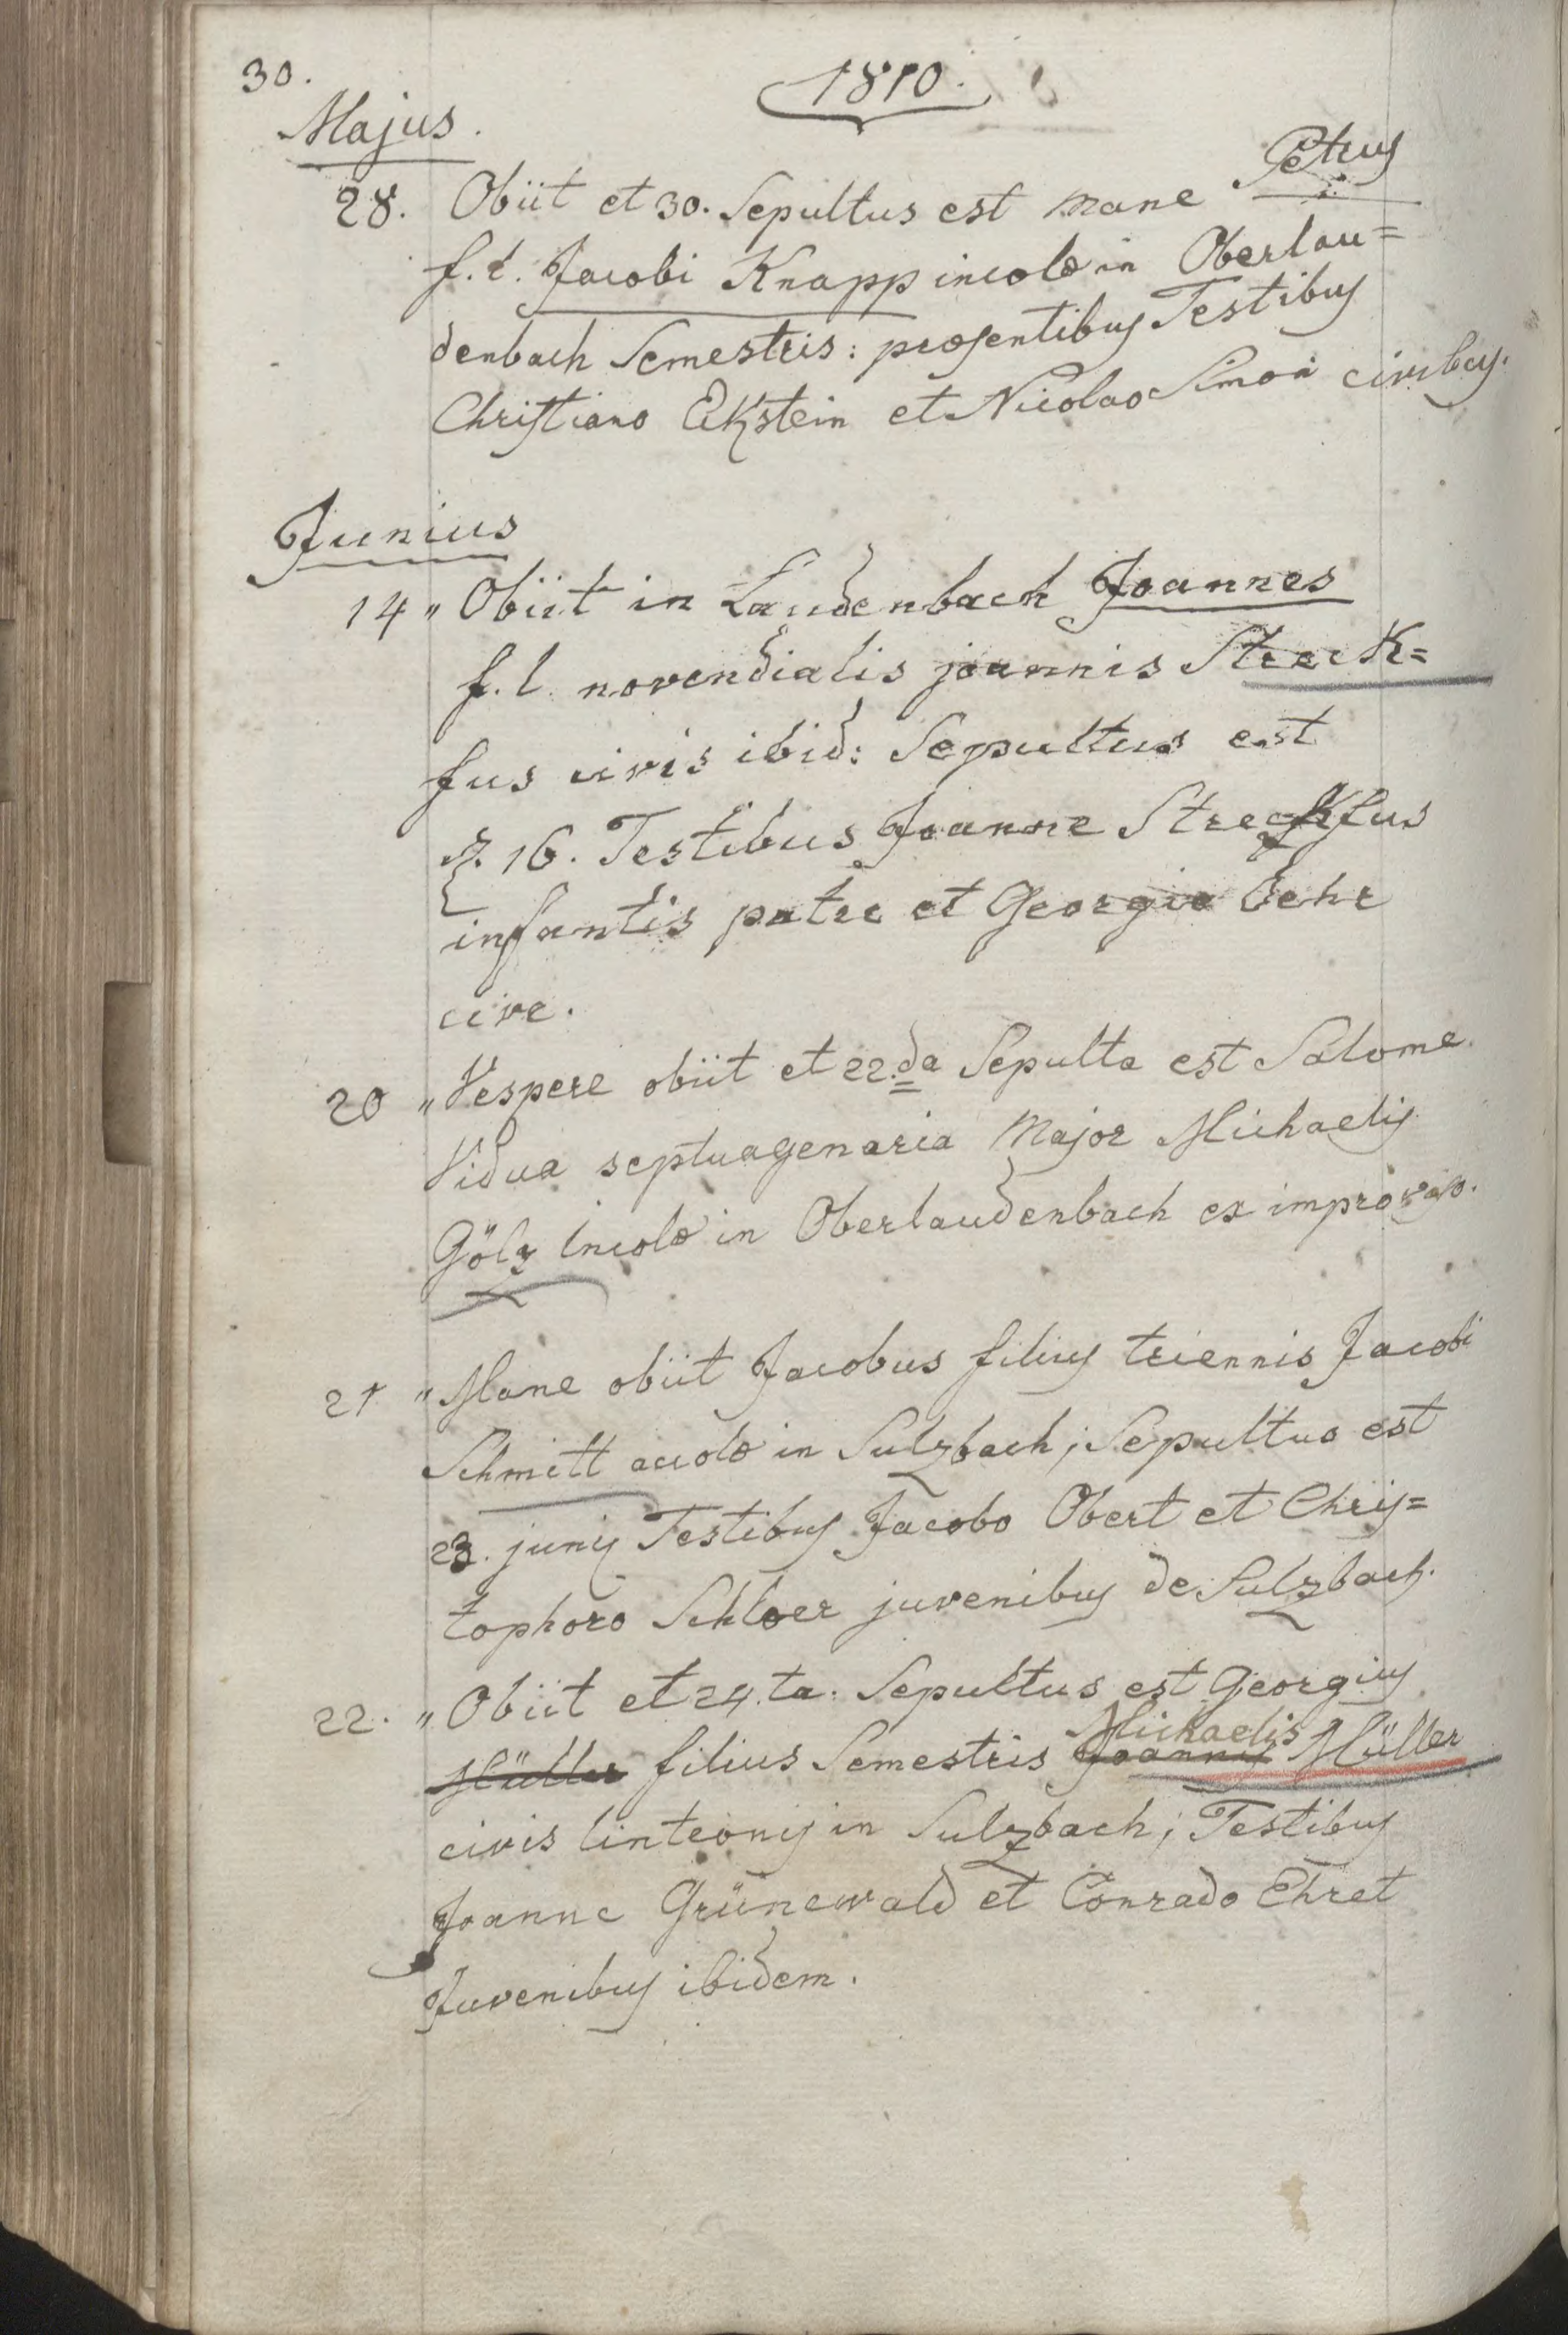 30.
1810.
Majus.
28. Obiit et 30. Sepultus est mane Petrus
f. l. Jacobi Knapp incolæ in Oberlau=
denbach Semestris: præsentibus Testibus
Christiano Ekstein et Nicolao Simon civibus.
Junius
14 „ Obiit in Laudenbach Joannes
f. l. novendialis joannis Streck=
fus civis ibid: Sepultus est
16. Testibus Joanne Streckfus
infantis patre et Georgio Behr
cive.
20 „ Vespere obiit et 22.da Sepulta est Salome
Vidua septuagenaria Major Michaelis
Gölz Incolæ in Oberlaudenbach ex improviso.
21 „ Mane obiit Jacobus filius triennis Jacobi
Schmitt accolæ in Sulzbach; Sepultus est
23. junij Testibus Jacobo Obert et Chris=
tophoro Schloer juvenibus de Sulzbach.
22. „ Obiit et 24.ta. Sepultus est Georgius
Michaelis
Müller filius Semestris Joannis Müller
civis linteonis in Sulzbach; Testibus
Joanne Grünewald et Conrado Ehret
Juvenibus ibidem.